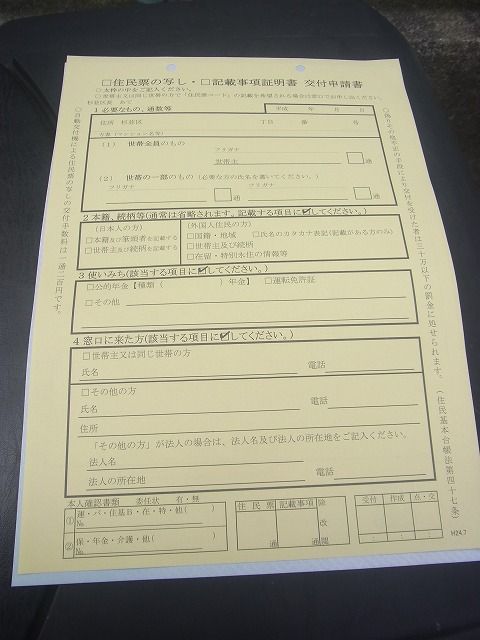 □住民票の写し・□記載事項証明書 交付申請書
○太枠の中をご記入ください。
○世帯主又は同じ世帯の方で「住民票コード」の記載を希望される場合は窓口でお申し出ください。
杉並区長 あて
平成 年 月 日
1 必要なもの、通数等
住所 杉並区 丁目 番 号
方書(マンション名等)
(1) 世帯全員のもの
フリガナ
世帯主 □通
(2) 世帯の一部のもの(必要な方の氏名を書いてください。)
フリガナ フリガナ
□通 □通
2 本籍、続柄等(通常は省略されます。記載する項目に☑してください。)
(日本人の方) (外国人住民の方)
□本籍及び筆頭者を記載する □国籍・地域 □氏名のカタカナ表記(記載がある方のみ)
□世帯主及び続柄を記載する □世帯主及び続柄
□在留・特別永住の情報等
3 使いみち(該当する項目に☑してください。)
□公的年金【種類( )年金】 □運転免許証
□その他
4 窓口に来た方(該当する項目に☑してください。)
□世帯主又は同じ世帯の方
氏名 電話
□その他の方
氏名 電話
住所
「その他の方」が法人の場合は、法人名及び法人の所在地をご記入ください。
法人名
法人の所在地 電話
本人確認書類 委任状 有・無
① 運・パ・住基B・在・特・他( )
№
② 保・年金・介護・他( )
№
住民票 記載事項 除
改
通 通 閲
受付 作成 点・交
: : :
H24.7
○自動交付機による住民票の写しの交付手数料は一通二百円です。
○偽りその他不正の手段により交付を受けた者は三十万以下の罰金に処せられます。(住民基本台帳法第四十七条)